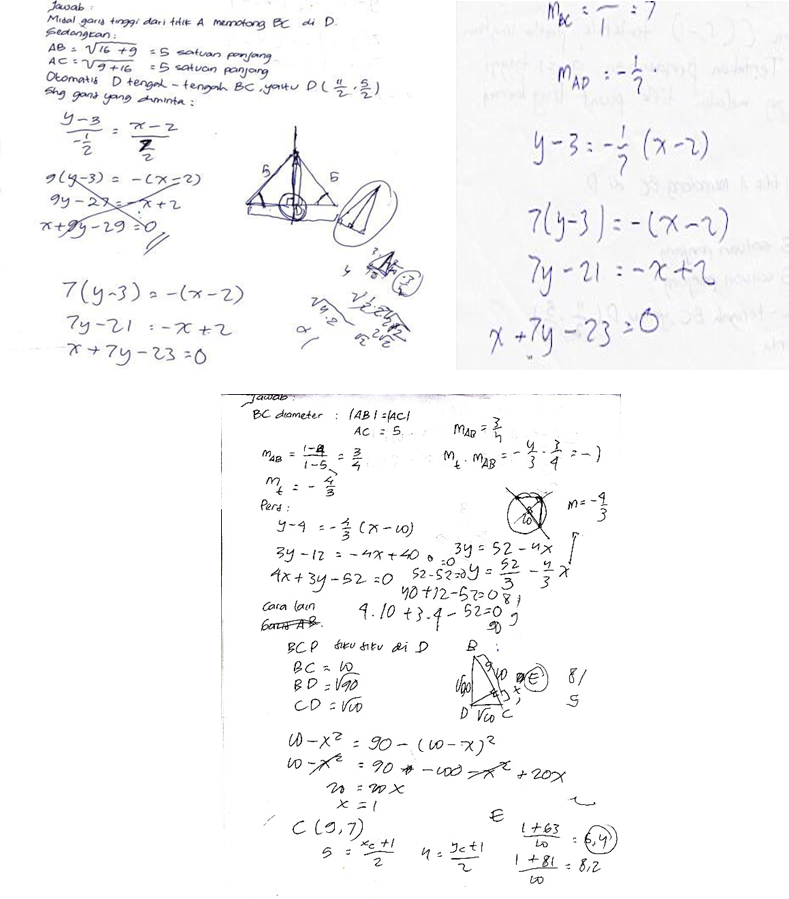 Jawab:
Misal garis tinggi dari titik A memotong BC di D.
Sedangkan:
AB = √16+9 = 5 satuan panjang
AC = √9+16 = 5 satuan panjang
Otomatis D tengah-tengah BC, yaitu D (11/2, 5/2)
Shg garis yang diminta:
(y-3)/(-1/2) = (x-2)/(7/2)
9(y-3) = -(x-2)
9y-27 = -x+2
x+9y-29=0
7(y-3) = -(x-2)
7y-21 = -x+2
x+7y-23=0
5
5
m_AD = -1/7.
y-3 = -1/7 (x-2)
7(y-3) = -(x-2)
7y-21 = -x+2
x+7y-23=0
Jawab
BC diameter : |AB|=|AC|
AC = 5.
m_AB = (1-4)/(1-5) = 3/4
m_t = -4/3
m_AB = 3/4
m_t . m_AB = -4/3 . 3/4 = -1
Pers:
y-4 = -4/3 (x-10)
3y-12 = -4x+40
4x+3y-52=0
m = -4/3
3y = 52-4x
y = 52/3 - 4/3 x
52-52=0
40+12-52=0
4.10+3.4-52=0
Cara lain
Garis AB.
BCD siku siku di D
BC = 10
BD = √90
CD = √10
B
√90
10
E
D √10 C
81
10-x² = 90-(10-x)²
10-x² = 90-100-x²+20x
20 = 20x
x = 1
C (9,7)
5 = (x_c+1)/2 4 = (y_c+1)/2
E
(1+63)/10 = 6,4
(1+81)/10 = 8,2